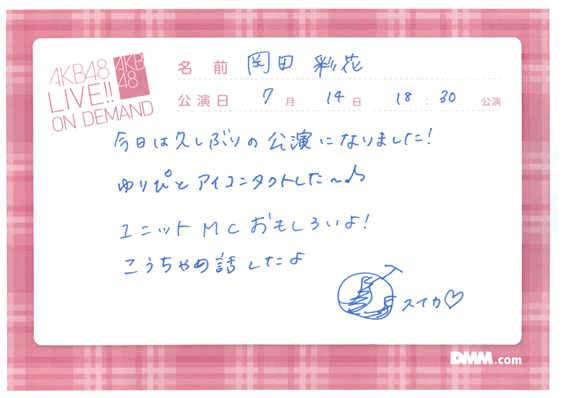 AKB48
LIVE!!
ON DEMAND
AKB
48
名前 岡田 彩花
公演日 7月 14日 18:30 公演
今日は久しぶりの公演になりました!
ゆりぴとアイコンタクトした〜♪
ユニットMCおもしろいよ!
こうちゃの話したよ
スイカ♡
DMM.com